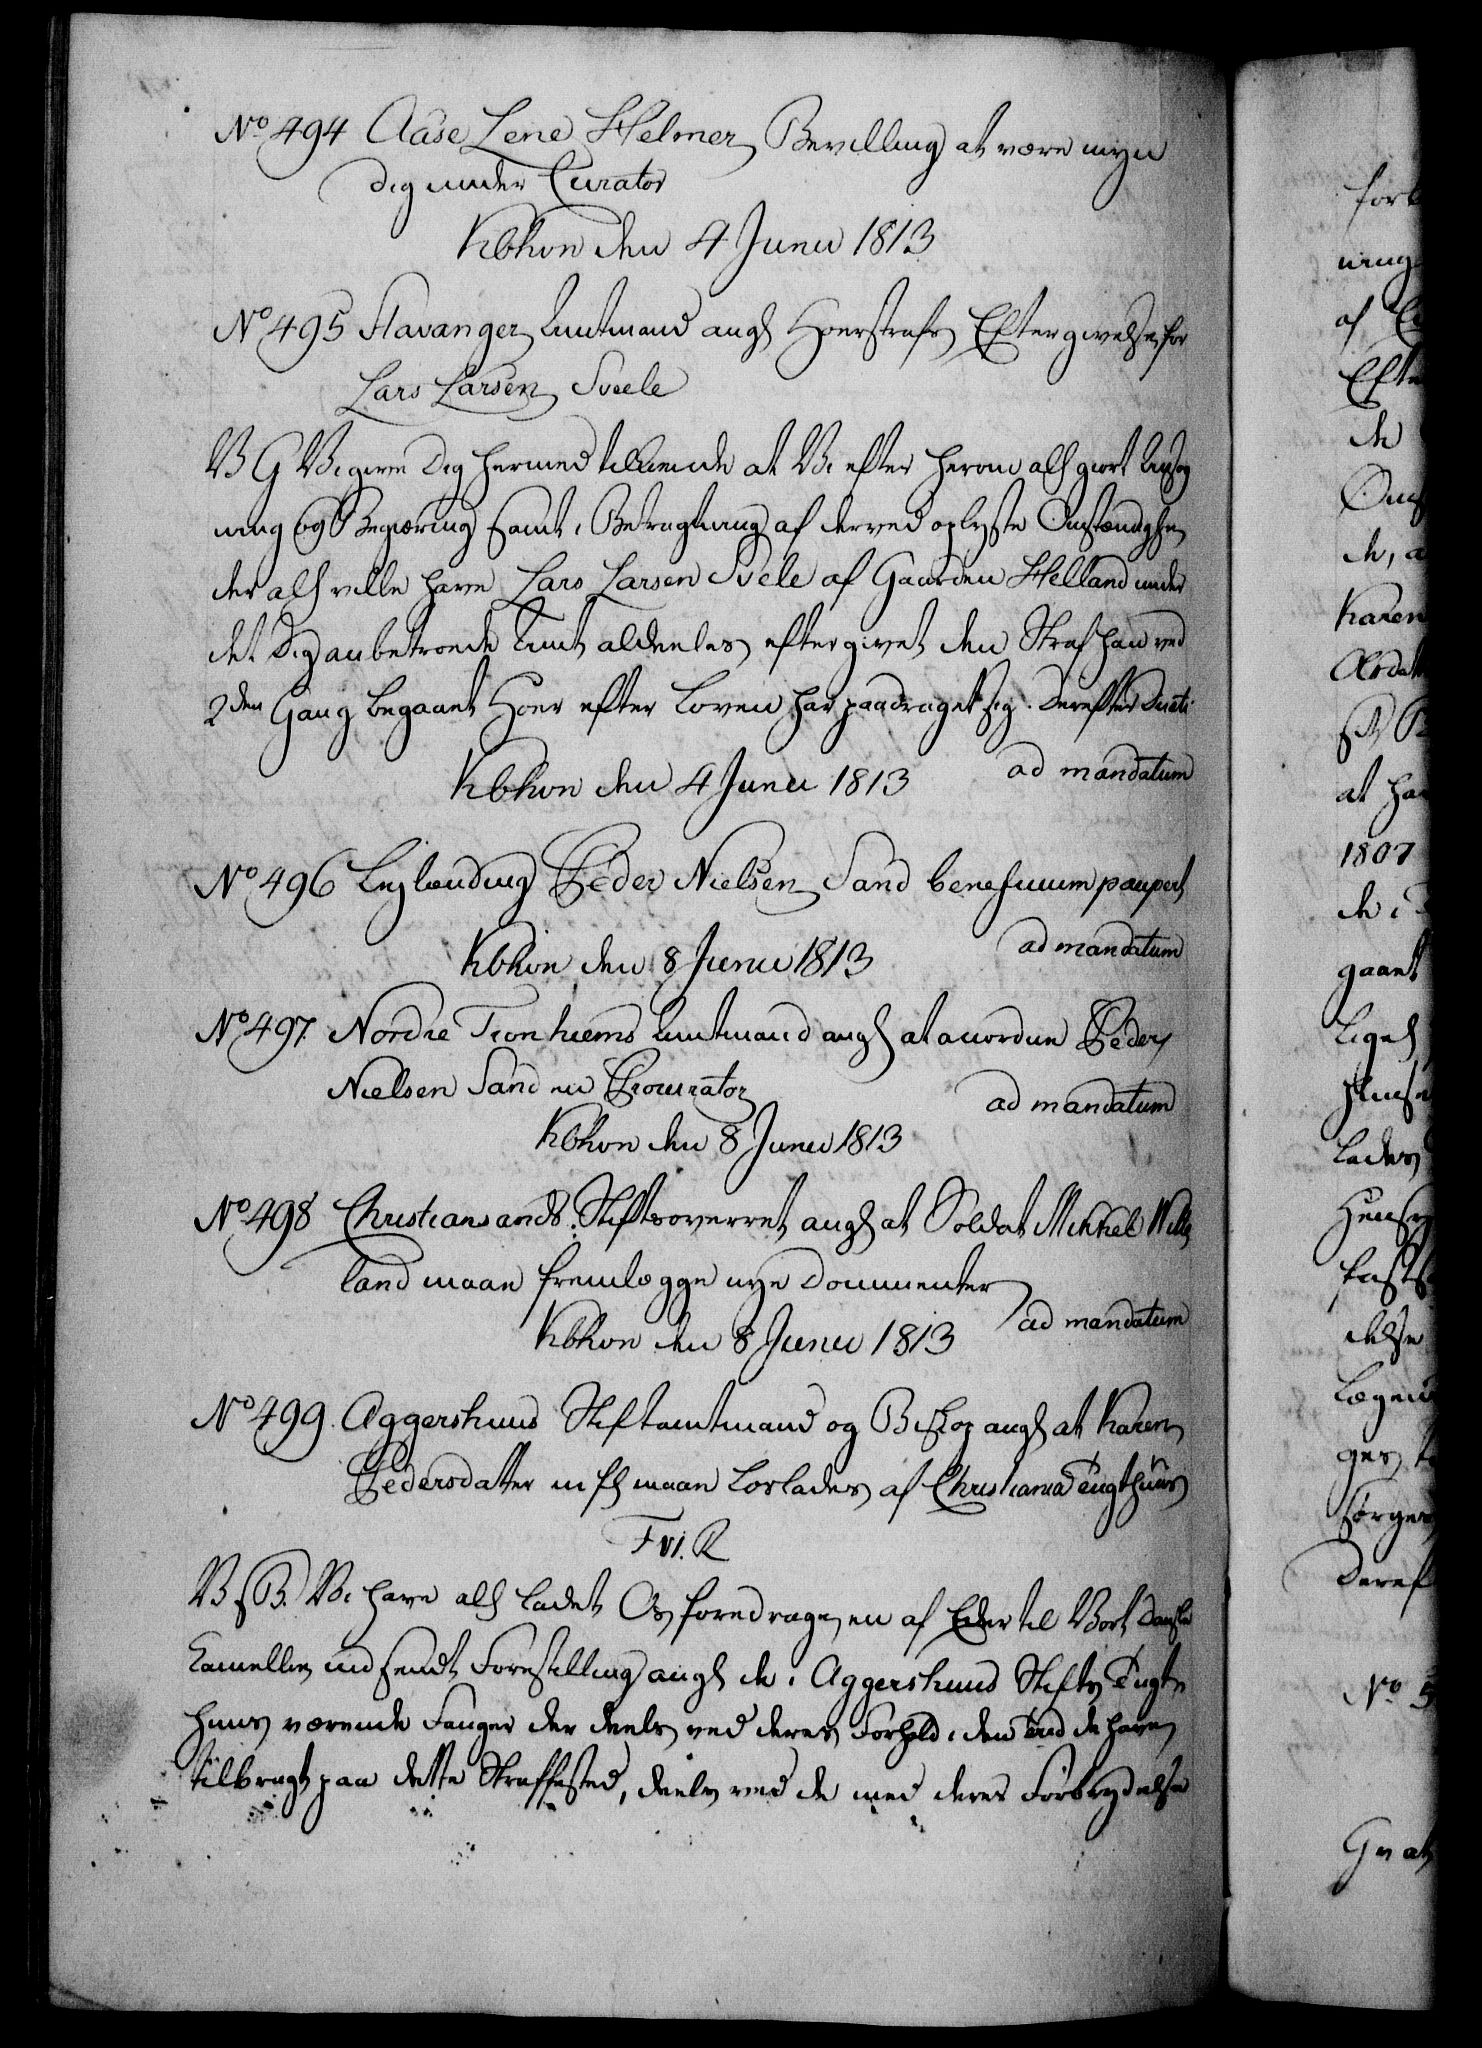 No 494 Aase Lene Helmer Bevilling at være myn
dig under Curator
Kbhvn den 4 Junii 1813
No 495 Stavanger Amtmand angl Hoerstrafs Eftergivelse for
Lars Larsen Sveele
V G Vi give Dig hermed tilkiende at Vi efter herom all giort Ansøg
ning og Begiæring samt i Betragtning af derved oplyste Omstændighe
der all ville have Lars Larsen Svele af Gaarden Helland under
det Dig anbetroede Amt aldeeles eftergivet den Straf han ved
2den Gang begaaet Hoer efter Loven har paadraget sig. Derefter
Kbhvn den 4 Junii 1813 ad mandatum
No 496 Leylænding Peder Nielsen Sand beneficium paupert
Kbhvn den 8 Junii 1813 ad mandatum
No 497. Nordre Tronhiems Amtmand angl at anordne Peder
Nielsen Sand en Procurator
ad mandatum
Kbhvn den 8 Junii 1813
No 498 Christiansands Stiftsoverret angl at Soldat Mikkel
land maae fremlægge nye Documenter
Kbhvn den 8 Junii 1813 ad mandatum
No 499. Aggershuus Stiftamtmand og Biskop angl at Karen
Pedersdatter m fl maae loslades af Christiania Tugthuus
F VI. R
V s B. Vi have all ladet Os foredrage en af Eder til Vort Danske
Cancellie indsendt Forestilling angl de i Aggershuus Stifts Tugt
huus værende Fanger der deels ved deres Forhold i den Tiid de have
tilbragt paa dette Straffested, deels ved de med deres Forbrydelse